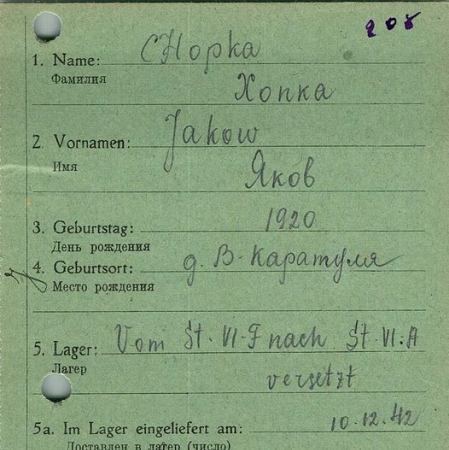 208
1. Name: CHopka
Фамилия
Хопка
2. Vornamen: Jakow
Имя
Яков
3. Geburtstag: 1920
День рождения
4. Geburtsort: д. В-Каратуля
Место рождения
5. Lager: Vom St. VI.F nach St. VI.A
Лагер
versetzt
5a. Im Lager eingeliefert am: 10.12.42
Доставлен в лагер (число)